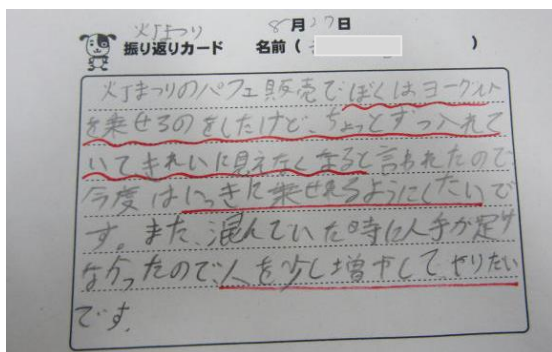 火丁まつり 8月27日
振り返りカード 名前( )
火丁まつりのパフェ販売でぼくはヨーグルト
を乗せるのをしたけど、ちょっとずつ入れて
いてきれいに見えなくなると言われたので
今度は いっきに乗せれるようにしたいで
す。また、混んでいた時に人手が足り
なかったので人を少し増やしてやりたい
です。